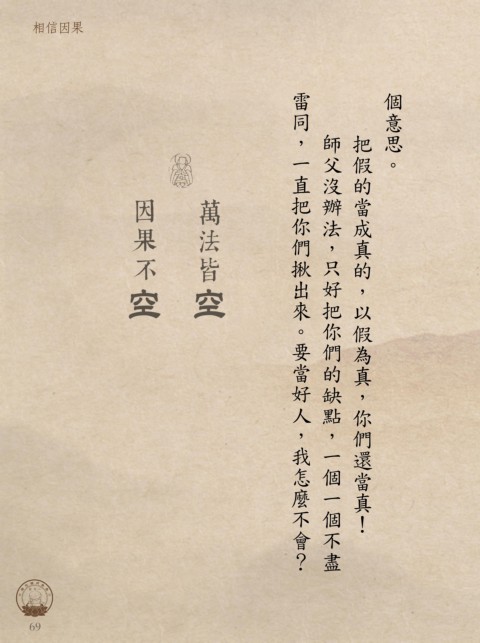 相信因果
個意思。
把假的當成真的，以假為真，你們還當真！
師父沒辦法，只好把你們的缺點，一個一個不盡
雷同，一直把你們揪出來。要當好人，我怎麼不會？
萬法皆空
因果不空
69